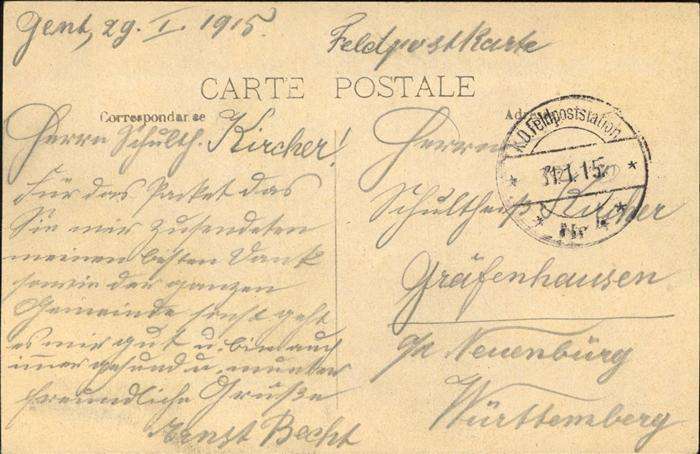 Gent, 29. I. 1915.
Feldpostkarte
CARTE POSTALE
Correspondance
Herrn Schulth. Kircher!
Für das Packet das
Sie mir zusendeten
meinen besten Dank
sowie der ganzen
Gemeinde sonst geht
es mir gut u. bin auch
imer gesund u. munter
freundliche Grüße
Ernst Becht
Herrn
Schultheiß Kircher
Gräfenhausen
Neuenbürg
Württemberg
K.D. Feldpoststation
31.1.15
Nr 4